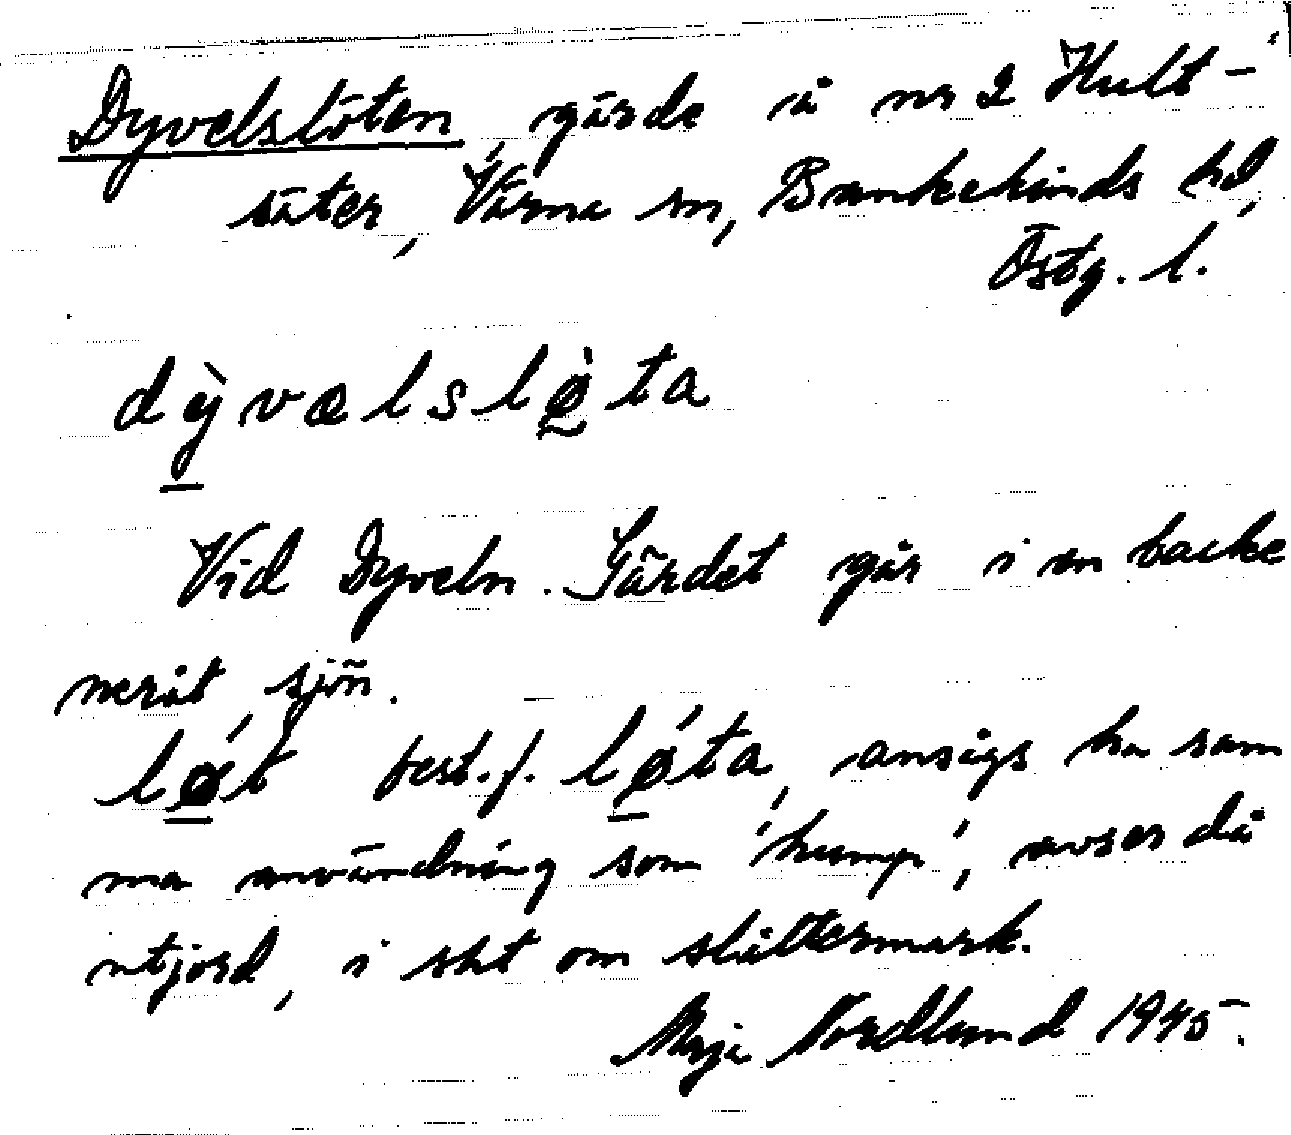 Dyvelslöten, gärde å nr 2 Hult-
säter, Värna sn, Bankekinds hd,
Östg. l.
dỳ̠vælslø̀ta
Vid Dyveln. Gärdet går i en backe
neråt sjön.
lǿ̠t best. f. lǿ̠ta, ansågs ha sam
ma användning som 'hump', avser då
utjord, i sht om slåttermark.
Maja Nordlund 1945.